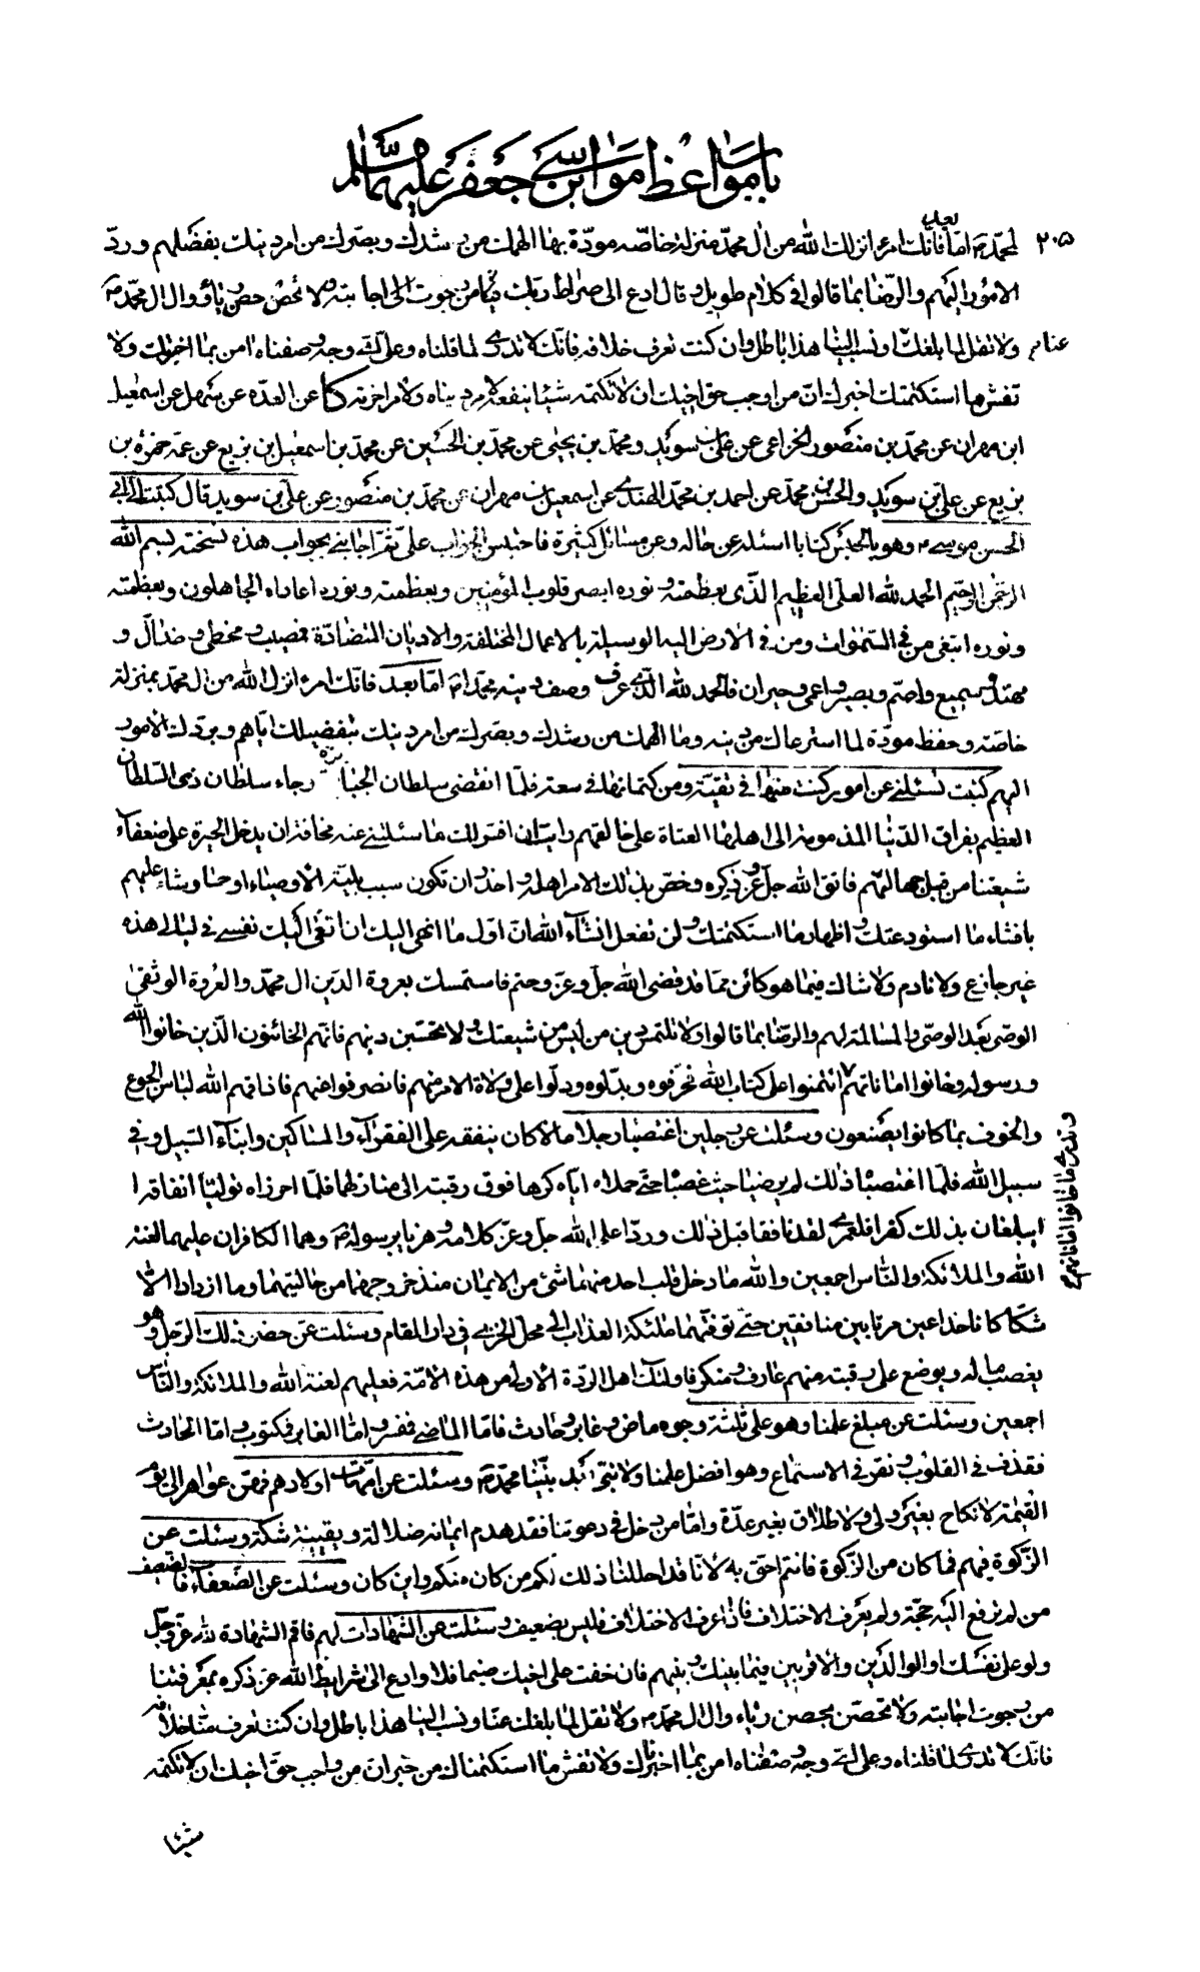 باب مواعظ موسى بن جعفر عليهما السلم
٢٠٥
لمحمد ص اما بعد فانك امرء انزلك الله من ال محمد منزلة خاصة مودة بما الهمك من رشدك وبصرك من امر دينك بفضلهم ورد
الامور اليهم والرضا بما قالوا في كلام طويل وقال ادع الى صراط ربك فينا من رجوت اجابته ولا تحصن حصن رياء ووال ال محمد ص
ولا تقل لما بلغك عنا او نسب الينا هذا باطل وان كنت تعرف خلافه فانك لا تدري لم قلناه وعلى اي وجه وصفناه امن بما اخبرتك ولا
تفش ما استكتمتك اخبرك ان من اوجب حق اخيك ان لا تكتمه شيئا ينفعه لامر دنياه ولامر اخرته كا عن العدة عن سهل عن اسمعيل
ابن مهران عن محمد بن منصور الخزاعي عن علي بن سويد ومحمد بن يحيى عن محمد بن الحسين عن محمد بن اسمعيل بن بزيع عن عمه حمزة بن
بزيع عن علي بن سويد والحسن بن محمد عن احمد بن محمد النهدي عن اسمعيل بن مهران عن محمد بن منصور عن علي بن سويد قال كتبت الى ابي
الحسن موسى ع وهو في الحبس كتابا اسئله عن حاله وعن مسائل كثيرة فاحتبس الجواب علي ثم اجابني بجواب هذه نسخته بسم الله
الرحمن الرحيم الحمد لله العلي العظيم الذي بعظمته ونوره ابصر قلوب المؤمنين وبعظمته ونوره اعاداه الجاهلون وبعظمته
ونوره ابتغى من في السموات ومن في الارض اليه الوسيلة بالاعمال المختلفة والاديان المتضادة فمصيب ومخطئ وضال و
مهتد وسميع واصم وبصير واعمى وحيران فالحمد لله الذي عرف ووصف دينه محمد ص اما بعد فانك امرء انزلك الله من ال محمد بمنزلة
خاصة وحفظ مودة لما استرعاك من دينه وما الهمك من رشدك وبصرك من امر دينك بتفضيلك اياهم وبردك الامور
اليهم كتبت تسئلني عن امور كنت منها في تقية ومن كتمانها في سعة فلما انقضى سلطان الجبابرة وجاء سلطان ذي السلطان
العظيم بفراق الدنيا المذمومة الى اهلها العتاة على خالقهم رايت ان افسر لك ما سئلتني عنه مخافة ان يدخل الحيرة على ضعفاء
شيعتنا من قبل جهالتهم فاتق الله جل وعز ذكره وخص بذلك الامر اهله واحذر ان تكون سبب بلية الاوصياء او حارشا عليهم
بافشاء ما استودعتك واظهار ما استكتمتك ولن تفعل انشاء الله ان اول ما انهى اليك ان انعى اليك نفسي في ليالي هذه
غير جازع ولا نادم ولا شاك فيما هو كائن مما قد قضى الله جل وعز وحتم فاستمسك بعروة الدين ال محمد والعروة الوثقى
الوصي بعد الوصي والمسالمة لهم والرضا بما قالوا ولا تلتمس دين من ليس من شيعتك ولا تحبن دينهم فانهم الخائنون الذين خانوا الله
ورسوله وخانوا اماناتهم ائتمنوا على كتاب الله فحرفوه وبدلوه ودلوا على ولاة الامر منهم فانصرفوا عنهم فاذاقهم الله لباس الجوع
وتدري ما خانوا اماناتهم
والخوف بما كانوا يصنعون وسئلت عن رجلين اغتصبا رجلا مالا كان ينفقه على الفقراء والمساكين وابناء السبيل وفي
سبيل الله فلما اغتصباه ذلك لم يرضيا حيث غصباه حتى حملاه اياه كرها فوق رقبته الى منازلهما فلما احرزاه توليا انفاقه ا
ايبلغان بذلك كفرا فلعمري لقد نافقا قبل ذلك وردا على الله جل وعز كلامه وهزئا برسوله ص وهما الكافران عليهما لعنة
الله والملائكة والناس اجمعين والله ما دخل قلب احد منهما شئ من الايمان منذ خروجهما من حالتيهما وما ازدادا الا
شكا كانا خداعين مرتابين منافقين حتى توفتهما ملئكة العذاب الى محل الخزي في دار المقام وسئلت عمن حضر ذلك الرجل وهو
يغصب ماله ويوضع على رقبته منهم عارف ومنكر فاولئك اهل الردة الاولى من هذه الامة فعليهم لعنة الله والملائكة والناس
اجمعين وسئلت عن مبلغ علمنا وهو على ثلثة وجوه ماض وغابر وحادث فاما الماضي فمفسر واما الغابر فمكتوب واما الحادث
فقذف في القلوب ونقر في الاسماع وهو افضل علمنا ولا نبي بعد نبينا محمد ص وسئلت عن امهات اولادهم فهن عواهر الى يوم
القيمة نكاح بغير ولي وطلاق بغير عدة واما من دخل في دعوتنا فقد هدم ايمانه ضلاله ويقينه شكه وسئلت عن
الزكوة فيهم فما كان من الزكوة فانتم احق به لانا قد احللنا ذلك لكم من كان منكم واين كان وسئلت عن الضعفاء فالضعيف
من لم يرفع اليه حجة ولم يعرف الاختلاف فاذا عرف الاختلاف فليس بضعيف وسئلت عن الشهادات لهم فاقم الشهادة لله عز وجل
ولو على نفسك او الوالدين والاقربين فيما بينك وبينهم فان خفت على اخيك ضيما فلا وادع الى شرايط الله عز ذكره بمعرفتنا
من رجوت اجابته ولا تحصن بحصن رياء ووال ال محمد ولا تقل لما بلغك عنا ونسب الينا هذا باطل وان كنت تعرف منا خلافه
فانك لا تدري لما قلناه وعلى اي وجه وصفناه امن بما اخبرك ولا تفش ما استكتمناك من خبرك ان من واجب حق اخيك ان لا تكتمه
شيئا